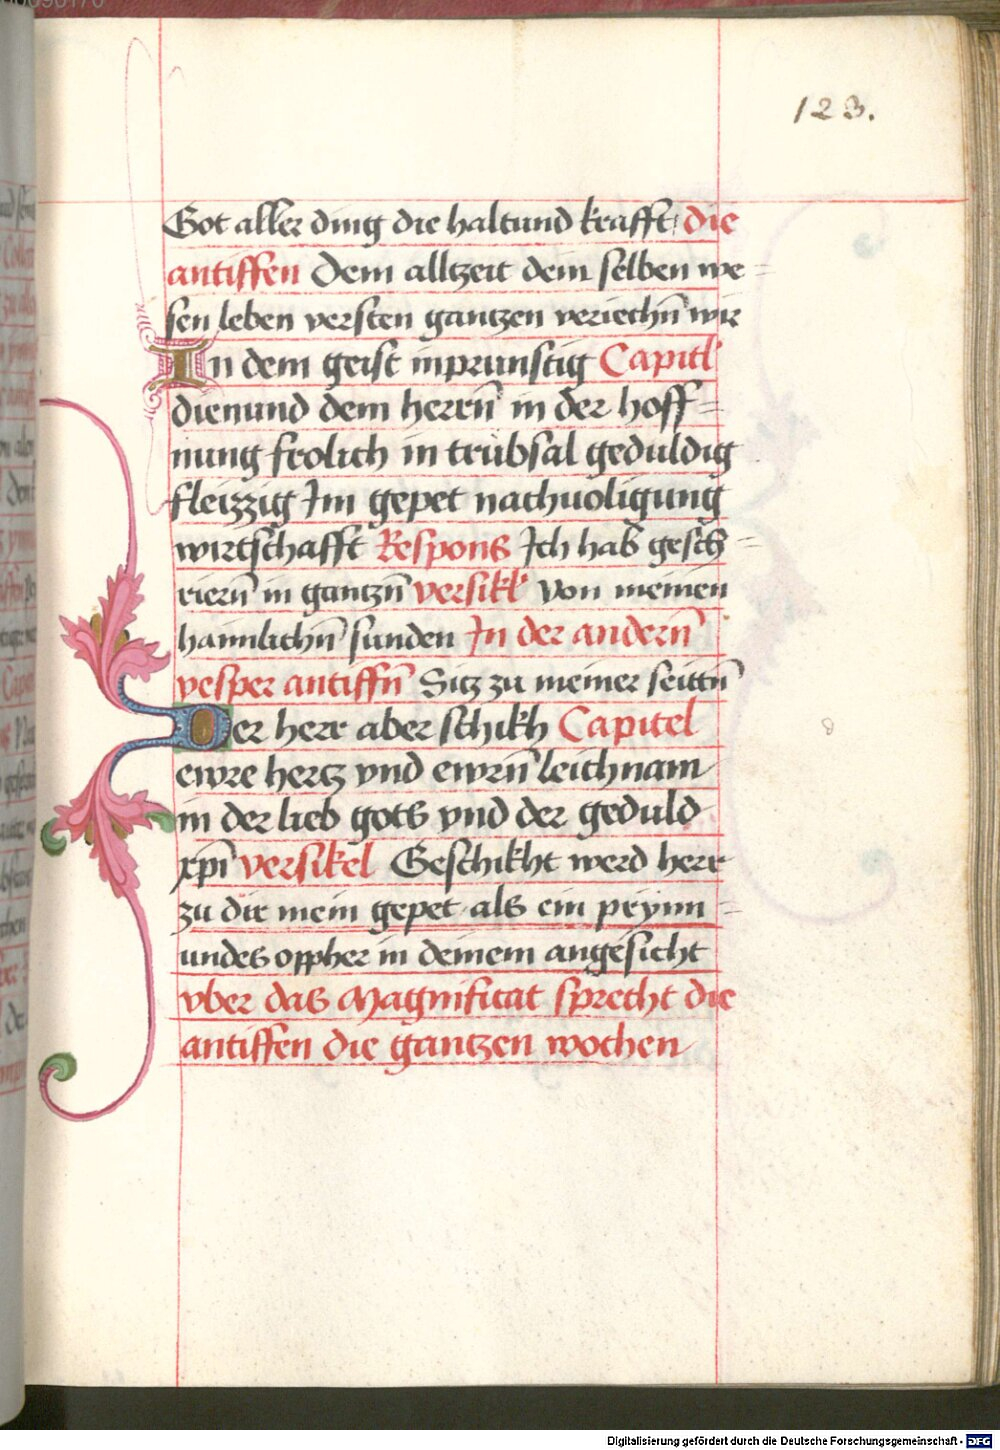 123.
Got aller ding die haltund krafft die
antiffen Dem alltzeit dem selben we=
sen leben versten gantzen veriechn̄ wir
In dem geist inprunstig Capitl
dienund dem herrn̄ in der hoff=
nung frolich in trübsal geduldig
fleizzig Im gepet nachuoligung
wirtschafft Respons Ich hab gesch=
riern̄ in gantzn̄ versikl Von meinen
haimlichn̄ sunden In der andern̄
vesper antiffn̄ Sitz zu meiner seittn̄
Der herr aber schikh Capitel
ewre hertz vnd ewrn̄ leichnam
in der lieb gots vnd der geduld
xp̄i versikel Geschikht werd herr
zu dir mein gepet als ein prynn=
undes oppher in deinem angesicht
vber das Magnificat sprecht die
antiffen die gantzen wochen
Digitalisierung gefördert durch die Deutsche Forschungsgemeinschaft - DFG